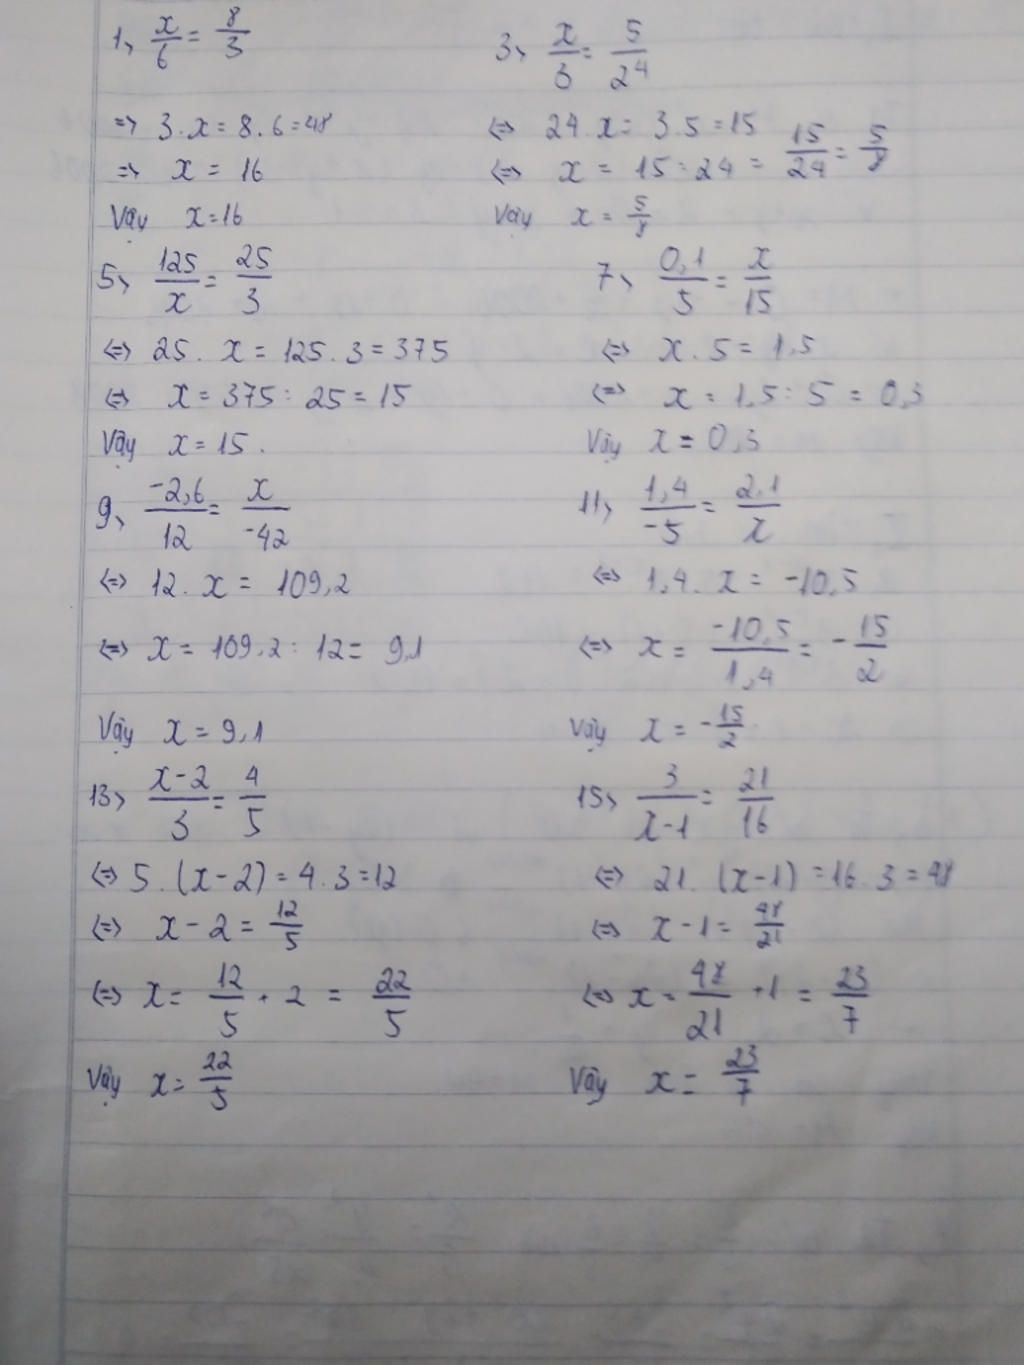 1, x/6 = 8/3
=> 3.x = 8.6 = 48
=> x = 16
Vậy x = 16
3, x/3 = 5/24
<=> 24.x = 3.5 = 15
<=> x = 15 : 24 = 15/24 = 5/8
Vậy x = 5/8
5, 125/x = 25/3
<=> 25. x = 125.3 = 375
<=> x = 375 : 25 = 15
Vậy x = 15.
7, 0,1/5 = x/15
<=> x.5 = 1,5
<=> x = 1,5 : 5 = 0,3
Vậy x = 0,3
9, -2,6/12 = x/-42
<=> 12. x = 109,2
<=> x = 109,2 : 12 = 9,1
Vậy x = 9,1
11, 1,4/-5 = 2,1/x
<=> 1,4. x = -10,5
<=> x = -10,5/1,4 = -15/2
Vậy x = -15/2
13, x-2/3 = 4/5
<=> 5.(x-2) = 4.3 = 12
<=> x - 2 = 12/5
<=> x = 12/5 + 2 = 22/5
Vậy x = 22/5
15, 3/x-1 = 21/16
<=> 21. (x-1) = 16.3 = 48
<=> x - 1 = 48/21
<=> x = 48/21 + 1 = 23/7
Vậy x = 23/7